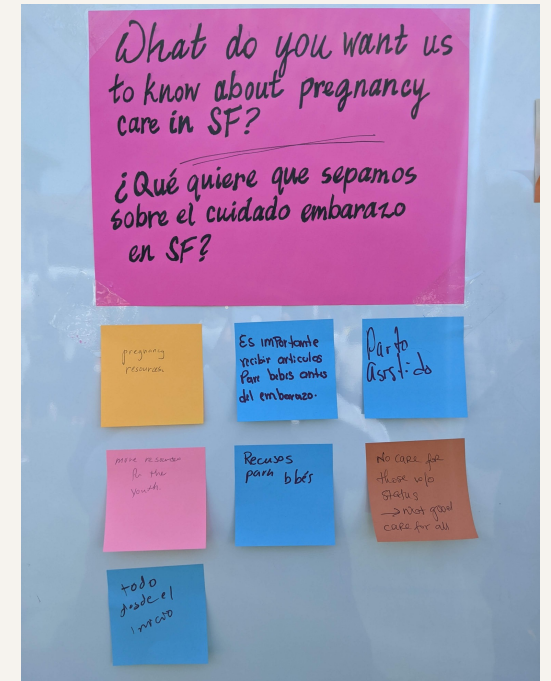 What do you want us
to know about pregnancy
care in SF?
¿Qué quiere que sepamos
sobre el cuidado embarazo
en SF?
pregnancy
resources
Es importante
recibir articulos
Para bebes antes
del embarazo.
Parto
asistido
more resources
for the
youth
Recusos
para bbés
No care for
those w/o
status
→ not good
care for all
todo
desde el
inicio